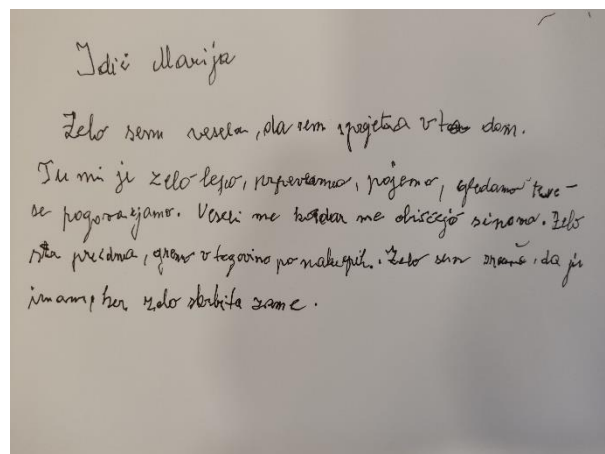 Idič Marija
Zelo sem vesela, da sem sprejeta v ta dom.
Tu mi je zelo lepo, prepevamo, pojemo, gledamo
se pogovarjamo. Veseli me kadar me obiščejo sinova. Zelo
sta pridna, gremo v trgovino po nakupih. Zelo sem da ju
imam, ker zelo skrbita zame.